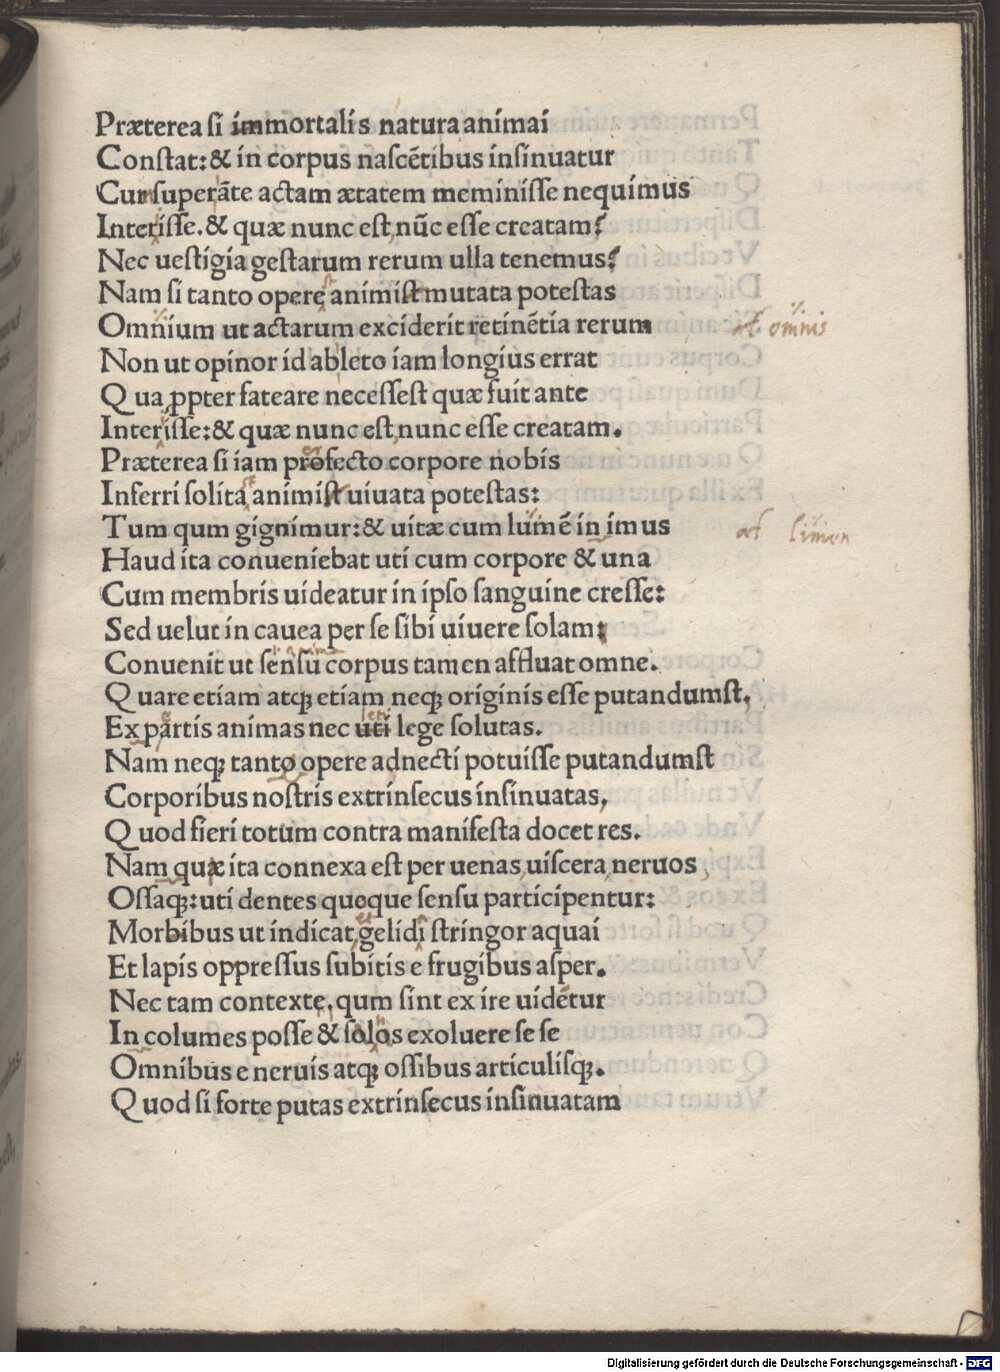 Præterea si immortalis natura animai
Constat: & in corpus nascẽtibus insinuatur
Cur superãte actam ætatem meminisse nequimus
Interisse. & quæ nunc est, nũc esse creatam?
Nec uestigia gestarum rerum ulla tenemus?
Nam si tanto opere animist mutata potestas
Omnium ut actarum exciderit retinẽtia rerum al omnis
Non ut opinor id ab leto iam longius errat
Qua ꝓpter fateare necessest quæ fuit ante
Interisse: & quæ nunc est, nunc esse creatam.
Præterea si iam profecto corpore nobis
Inferri solita animist uiuata potestas:
Tum qum gignimur: & uitæ cum lumẽ in imus al limen
Haud ita conueniebat uti cum corpore & una
Cum membris uideatur in ipso sanguine cresse:
Sed uelut in cauea per se sibi uiuere solam:
Conuenit ut sensu corpus tamen affluat omne.
Quare etiam atqꝫ etiam neqꝫ originis esse putandumst,
Ex partis animas nec uti lege solutas.
Nam neqꝫ tanto opere adnecti potuisse putandumst
Corporibus nostris extrinsecus insinuatas,
Quod fieri totum contra manifesta docet res.
Nam quæ ita connexa est per uenas, uiscera, neruos,
Ossaqꝫ: uti dentes quoque sensu participentur:
Morbibus ut indicat, gelidi stringor aquai
Et lapis oppressus subitis e frugibus asper.
Nec tam contexte, qum sint ex ire uidẽtur
In columes posse & solos exoluere se se
Omnibus e neruis atqꝫ ossibus articulisqꝫ.
Quod si forte putas extrinsecus insinuatam
Digitalisierung gefördert durch die Deutsche Forschungsgemeinschaft - DFG